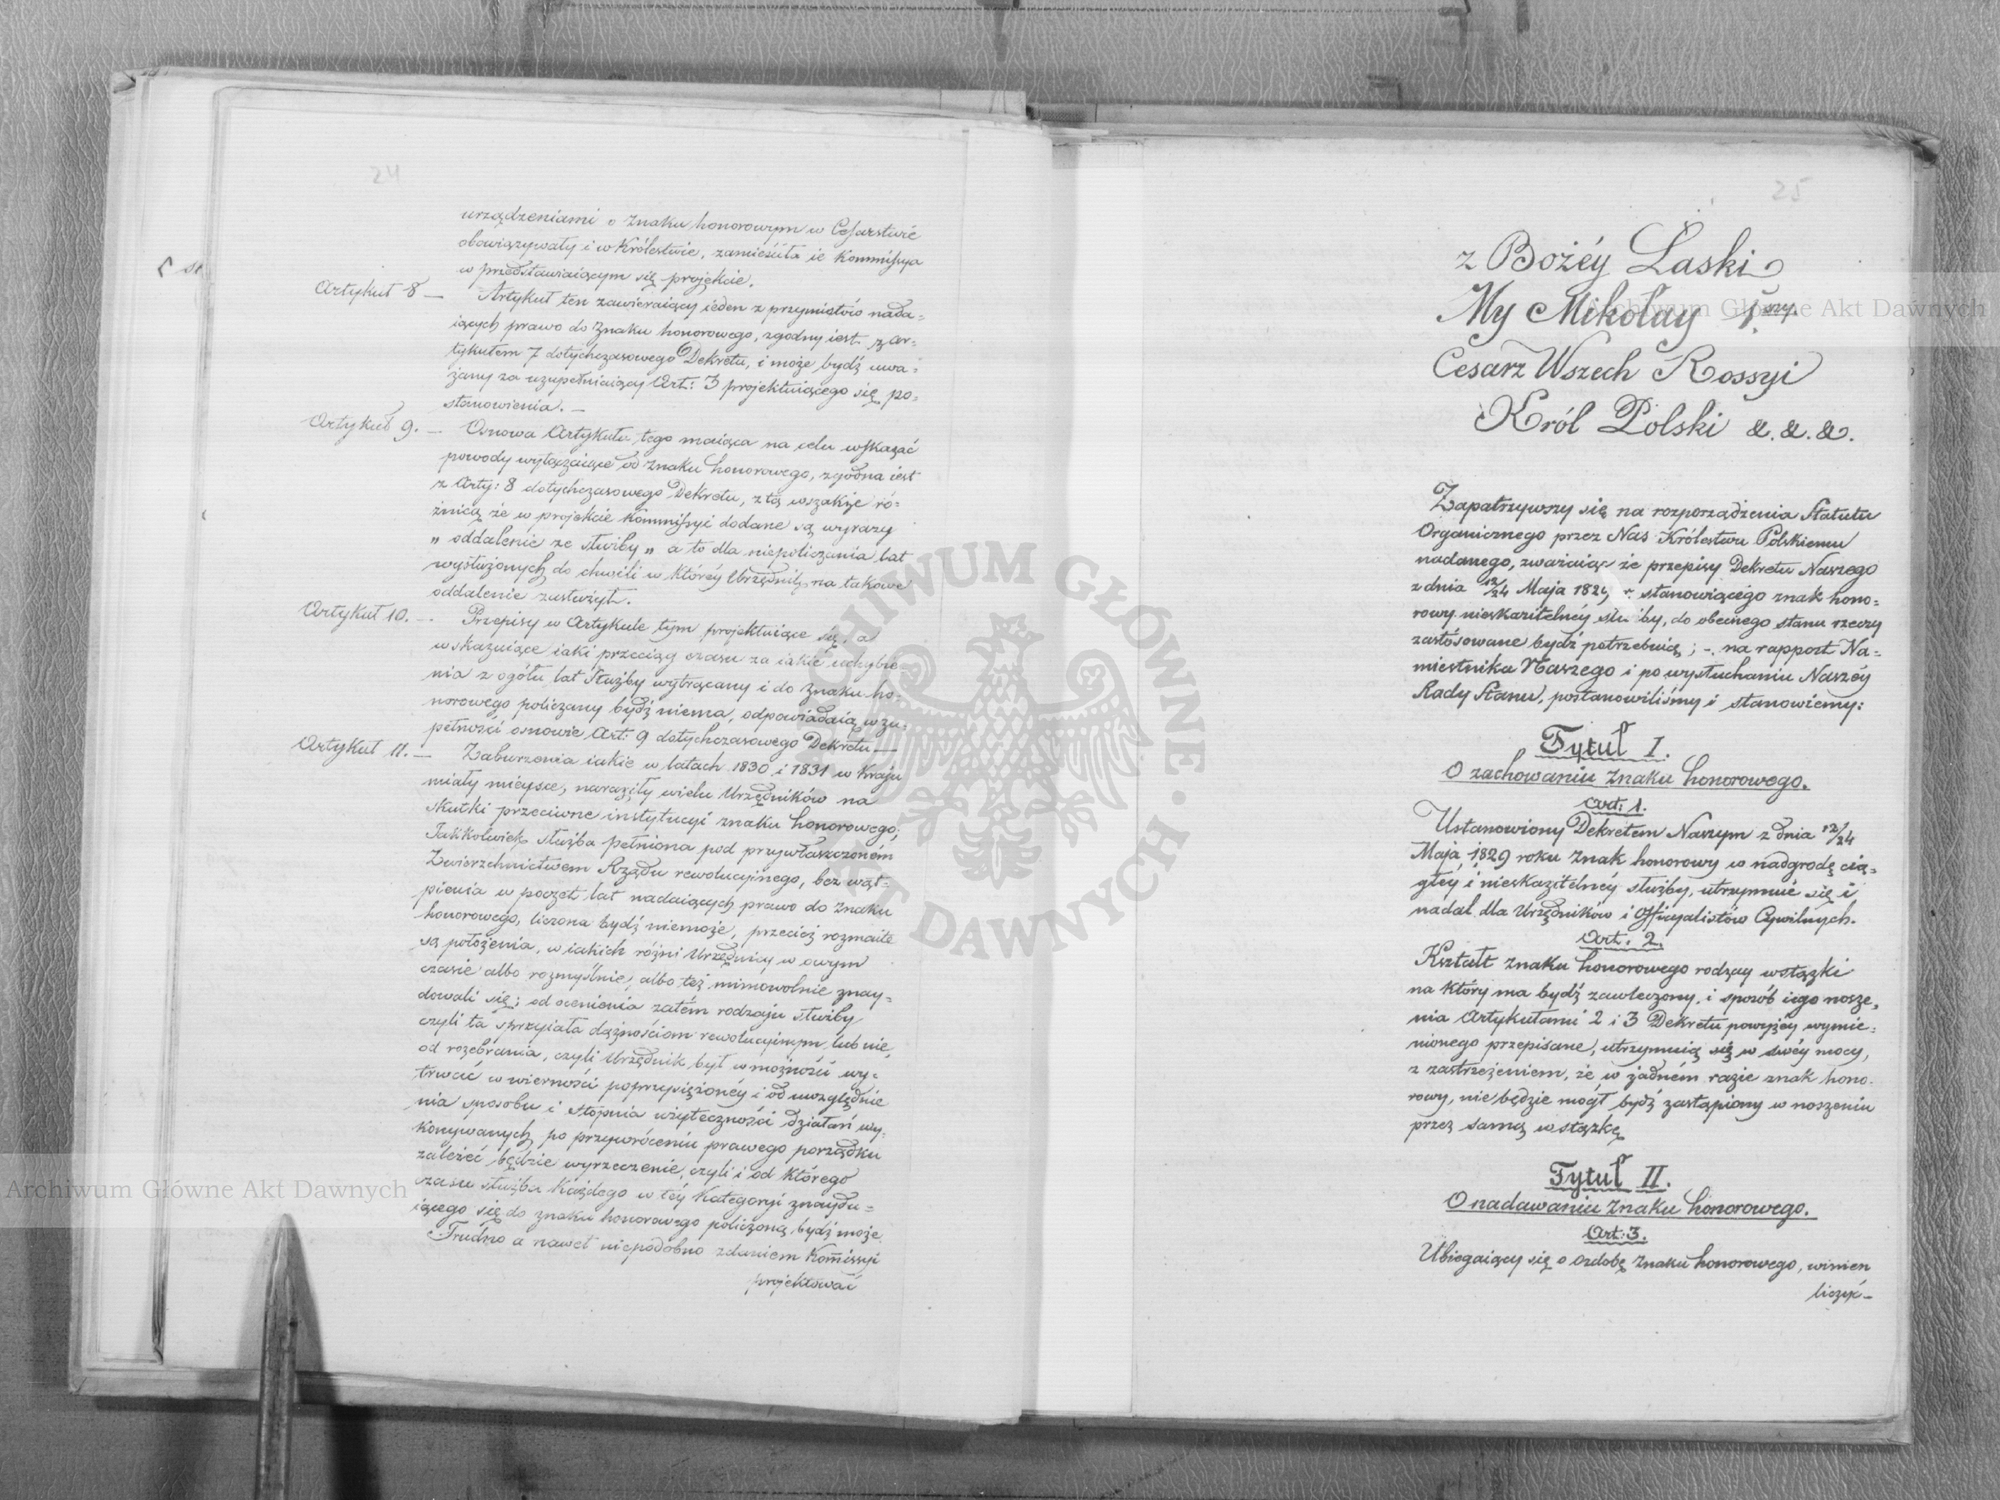 24
urządzeniami o znaku honorowym w Cesarstwie
obowiązywały i w Królestwie, zamieściła ie Kommissya
w przedstawiaiącym się projekcie.
Artykuł 8 — Artykuł ten zawieraiący ieden z przymiotów nada=
iących prawo do Znaku honorowego, zgodny iest z ar=
tykułem 7 dotychczasowego Dekretu, i może bydź uwa=
żany za uzupełniaiący Art: 3 projektuiącego się po=
stanowienia. —
Artykuł 9. — Osnowa Artykułu tego maiąca na celu wskazać
powody wyłączaiące od znaku honorowego, zgodna iest
z Arty: 8 dotychczasowego Dekretu, z tą wszakże ró=
żnicą że w projekcie Kommissyi dodane są wyrazy
„ oddalenie ze służby „ a to dla niepoliczania lat
wysłużonych do chwili w któréy Urzędnik na takowe
oddalenie zasłużył.
Artykuł 10. — Przepisy w Artykule tym projektuiące się, a
wskazuiące iaki przeciąg czasu za iakie uchybie=
nia z ogółu lat służby wytrącany i do znaku ho=
norowego policzany bydź niema, odpowiadaią w zu=
pełności osnowie Art: 9 dotychczasowego Dekretu —
Artykuł 11. — Zaburzenia iakie w latach 1830 i 1831 w Kraju
miały mieysce, naraziły wielu Urzędników na
skutki przeciwne instytucyi znaku honorowego;
Jakkolwiek służba pełniona pod przywłaszczoném
Zwierzchnictwem Rządu rewolucyinego, bez wąt=
pienia w poczet lat nadaiących prawo do znaku
honorowego, liczona bydź niemoże, przecież rozmaite
są położenia, w iakich różni Urzędnicy w owym
czasie albo rozmyślnie, albo też mimowolnie znay=
dowali się; od ocenienia zatém rodzaju służby
czyli ta sprzyiała dążnościom rewolucyinym, lub nie,
od rozebrania, czyli Urzędnik był w możności wy=
trwać w wierności poprzysiężonéy i od uwzględnie
nia sposobu i stopnia użyteczności działań wy=
konywanych po przywróceniu prawego porządku
zależeć będzie wyrzeczenie, czyli i od którego
czasu służba każdego w téy Kategoryi znaydu=
iącego się do znaku honorowego policzoną bydź może.
Trudno a nawet niepodobno zdaniem Kommissyi
projektować
25
z Bożéy Łaski
My Mikołay 1.szy
Cesarz Wszech Rossyi
Król Polski &. &. &.
Zapatrzywszy się na rozporządzenia Statutu
Organicznego przez Nas Królestwu Polskiemu
nadanego, zważaiąc że przepisy Dekretu Naszego
z dnia 12/24 Maja 1829 r. stanowiącego znak hono=
rowy nieskazitelnéy służby, do obecnego stanu rzeczy
zastósowane bydź potrzebuią; —. na rapport Na=
miestnika Naszego i po wysłuchaniu Naszéy
Rady Stanu, postanowiliśmy i stanowiemy:
Tytuł I.
O zachowaniu znaku honorowego.
Art: 1.
Ustanowiony Dekretem Naszym z dnia 12/24
Maja 1829 roku znak honorowy w nadgrodę cią=
głéy i nieskazitelnéy służby, utrzymuie się i
nadal dla Urzędników i Officyalistów Cywilnych.
Art. 2.
Kształt znaku honorowego rodzay wstążki
na który ma bydź zawieczony, i sposób iego nosze=
nia Artykułami 2 i 3 Dekretu powyżéy wymie=
nionego przepisane, utrzymuią się w swéy mocy,
z zastrzeżeniem, że w żadném razie znak hono=
rowy, nie będzie mógł bydź zastąpiony w noszeniu
przez samą wstążkę
Tytuł II.
O nadawaniu znaku honorowego.
Art: 3.
Ubiegaiący się o ozdobę znaku honorowego, winien
liczyć —
Archiwum Główne Akt Dawnych
Archiwum Główne Akt Dawnych
ARCHIWUM GŁÓWNE AKT DAWNYCH